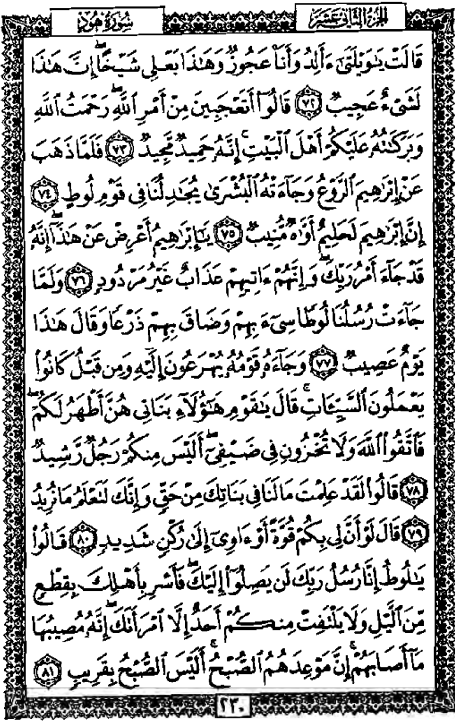 سُورَةُ هُودٍ الجُزْءُ الثَّانِي عَشَرَ
قَالَتْ يَٰوَيْلَتَىٰٓ ءَأَلِدُ وَأَنَا۠ عَجُوزٌ وَهَٰذَا بَعْلِى شَيْخًا ۖ إِنَّ هَٰذَا
لَشَىْءٌ عَجِيبٌ ٧٢ قَالُوٓا۟ أَتَعْجَبِينَ مِنْ أَمْرِ ٱللَّهِ ۖ رَحْمَتُ ٱللَّهِ
وَبَرَكَٰتُهُۥ عَلَيْكُمْ أَهْلَ ٱلْبَيْتِ ۚ إِنَّهُۥ حَمِيدٌ مَّجِيدٌ ٧٣ فَلَمَّا ذَهَبَ
عَنْ إِبْرَٰهِيمَ ٱلرَّوْعُ وَجَآءَتْهُ ٱلْبُشْرَىٰ يُجَٰدِلُنَا فِى قَوْمِ لُوطٍ ٧٤
إِنَّ إِبْرَٰهِيمَ لَحَلِيمٌ أَوَّٰهٌ مُّنِيبٌ ٧٥ يَٰٓإِبْرَٰهِيمُ أَعْرِضْ عَنْ هَٰذَآ ۖ إِنَّهُۥ
قَدْ جَآءَ أَمْرُ رَبِّكَ ۖ وَإِنَّهُمْ ءَاتِيهِمْ عَذَابٌ غَيْرُ مَرْدُودٍ ٧٦ وَلَمَّا
جَآءَتْ رُسُلُنَا لُوطًا سِىٓءَ بِهِمْ وَضَاقَ بِهِمْ ذَرْعًا وَقَالَ هَٰذَا
يَوْمٌ عَصِيبٌ ٧٧ وَجَآءَهُۥ قَوْمُهُۥ يُهْرَعُونَ إِلَيْهِ وَمِن قَبْلُ كَانُوا۟
يَعْمَلُونَ ٱلسَّيِّـَٔاتِ ۚ قَالَ يَٰقَوْمِ هَٰٓؤُلَآءِ بَنَاتِى هُنَّ أَطْهَرُ لَكُمْ ۖ
فَٱتَّقُوا۟ ٱللَّهَ وَلَا تُخْزُونِ فِى ضَيْفِىٓ ۖ أَلَيْسَ مِنكُمْ رَجُلٌ رَّشِيدٌ
٧٨ قَالُوا۟ لَقَدْ عَلِمْتَ مَا لَنَا فِى بَنَاتِكَ مِنْ حَقٍّ وَإِنَّكَ لَتَعْلَمُ مَا نُرِيدُ
٧٩ قَالَ لَوْ أَنَّ لِى بِكُمْ قُوَّةً أَوْ ءَاوِىٓ إِلَىٰ رُكْنٍ شَدِيدٍ ٨٠ قَالُوا۟
يَٰلُوطُ إِنَّا رُسُلُ رَبِّكَ لَن يَصِلُوٓا۟ إِلَيْكَ ۖ فَأَسْرِ بِأَهْلِكَ بِقِطْعٍ
مِّنَ ٱلَّيْلِ وَلَا يَلْتَفِتْ مِنكُمْ أَحَدٌ إِلَّا ٱمْرَأَتَكَ ۖ إِنَّهُۥ مُصِيبُهَا
مَآ أَصَابَهُمْ ۚ إِنَّ مَوْعِدَهُمُ ٱلصُّبْحُ ۚ أَلَيْسَ ٱلصُّبْحُ بِقَرِيبٍ ٨١
٢٣٠